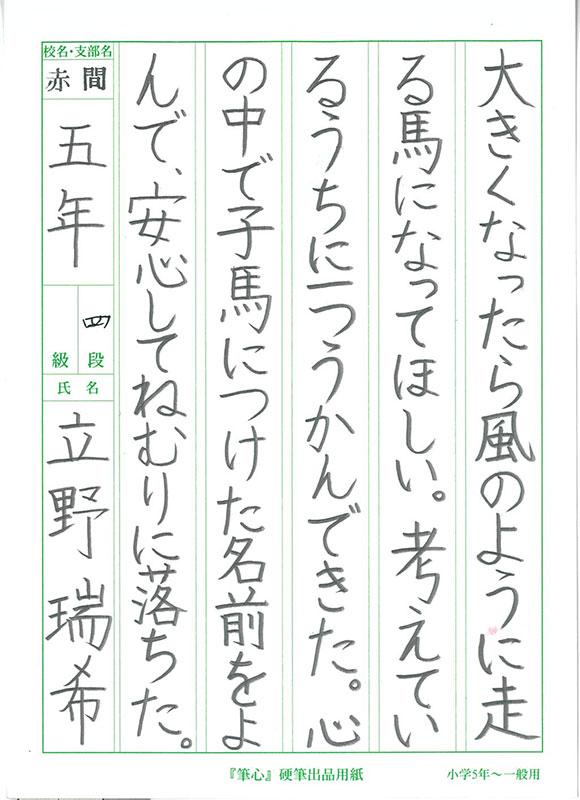 大きくなったら風のように走
る馬になってほしい。考えてい
るうちに一つうかんできた。心
の中で子馬につけた名前をよ
んで、安心してねむりに落ちた。
校名・支部名
赤間
五年
四段
級
氏名
立野瑞希
『筆心』硬筆出品用紙
小学5年～一般用